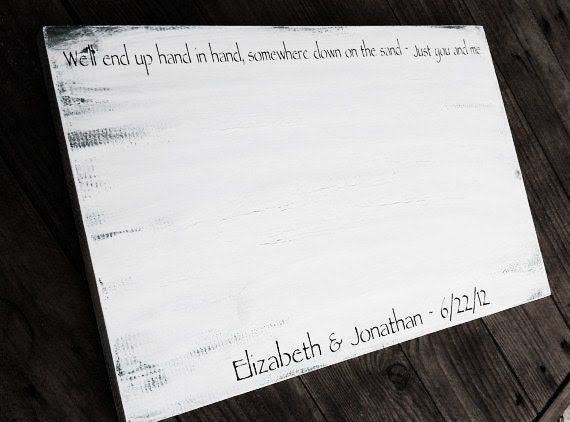 We'll end up hand in hand, somewhere down on the sand - Just you and me
Elizabeth & Jonathan - 6/22/12